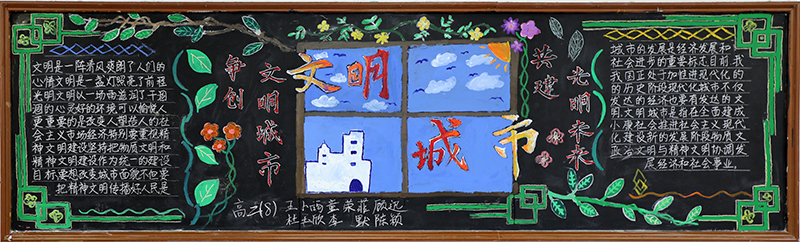 文明是一阵清风爽朗了人们的
心情文明是一盏灯照亮了前程
光明文明以一场雨滋润了干涸
的心灵好的环境可以愉悦人
更重要的是改变人塑造人的社
会主义市场经济特别要重视精
神文明建设坚持把物质文明和
精神文明建设作为统一的建设
目标要想改变城市面貌不但要
把精神文明传播好人民是
争创
文明城市
文明
城市
共建
光明未来
城市的发展是经济发展和
社会进步的重要标志目前我
我国正处于加快进现代化的
的历史阶段现代化城市不仅
发达的经济也要有发达的文
明文明城市是指在全面建成
小康社会推进社会主义现代
化建设新的发展阶段物质文
政治文明与精神文明协调发
展经济和社会事业,
高二(8)